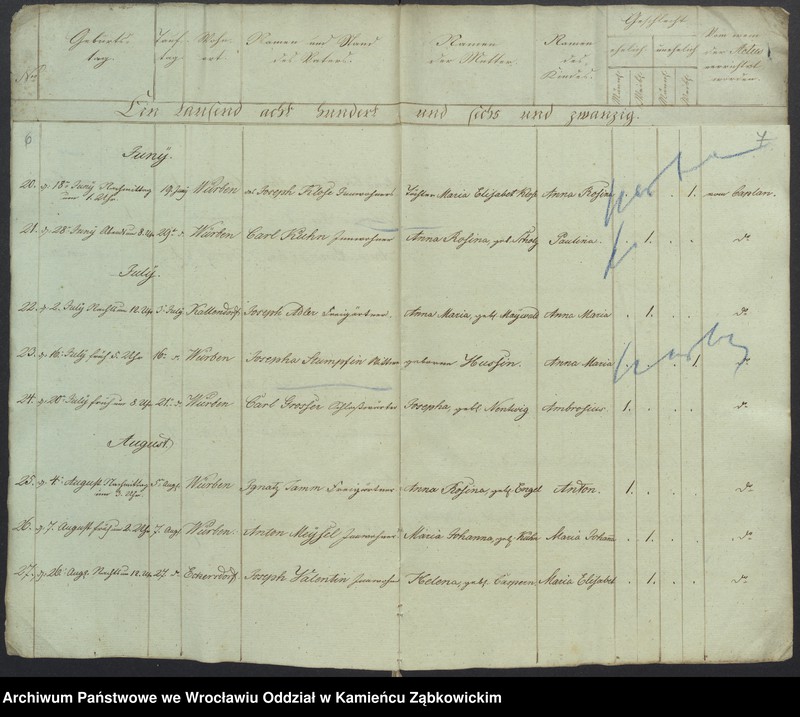 No
Geburts-
tag.
Tauf-
tag
Wohn-
ort.
Namen und Stand
des Vaters.
Namen
der Mutter.
Namen
des
Kindes.
Geschlecht
ehelich
unehelich
Männl.
Weibl.
Männl.
Weibl.
Von wem
der Actus
verrichtet
worden.
Ein tausend acht hundert und sechs und zwanzig.
6
7
Juny.
20. 18t Juny Nachmittag um 1 Uhr. 19. Juny Würben Joseph Klose Inwohners Tochter Maria Elisabet Klose Anna Rosina . . . 1. vom Caplan.
21. 28t Juny Abends um 8 Uhr 29t Würben Carl Kuhn Inwohner Anna Rosina, geb. Scholz Paulina. . 1. . . do
July.
22. 2. July Nachts um 12 Uhr 3. July Kallendorf. Joseph Adler Freigärtner. Anna Maria, geb. Maywald Anna Maria . 1. . . do
23. 16. July früh 5. Uhr 16. Würben Josepha Stumpfin geborene Hussin. Anna Maria . . . 1. do
24. 20t July früh um 8 Uhr 21t Würben Carl Grosser Schloßwärter Josepha, geb. Nentwig Ambrosius. 1. . . . do
August.
25. 4t August Nachmittag um 3. Uhr 5. Aug. Würben Ignatz Tamm Freigärtner Anna Rosina, geb. Engel Anton. 1. . . . do
26. 7. August früh um 2. Uhr 7. Aug. Würben. Anton Inwohner Maria Johanna, geb. Maria Johanna . 1. . . do
27. 26t Aug. Nachts um 12. Uhr 27. Eckersdorf. Joseph Valentin Inwohner Helena, geb. Maria Elisabet . 1. . . do
Archiwum Państwowe we Wrocławiu Oddział w Kamieńcu Ząbkowickim